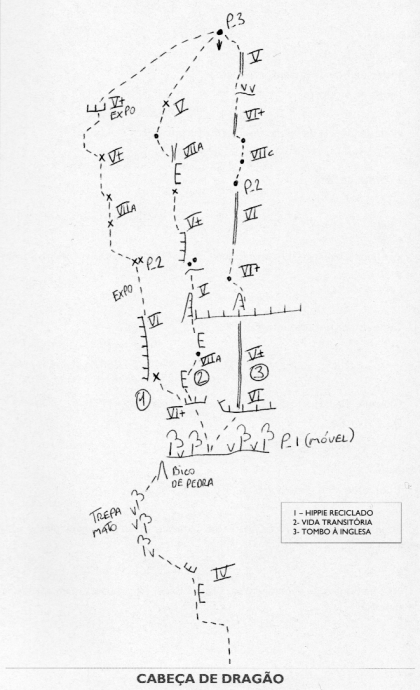 P_3
V
VV
V+
EXPO
V
VI+
V+
VIIA
VIIc
P_2
VIIA
V+
VI
P_2
EXPO
V
VI+
VI
E
VIIA
V+
1
2
3
VI+
VI
P_1 (MÓVEL)
BICO
DE PEDRA
TREPA
MATO
IV
1 – HIPPIE RECICLADO
2- VIDA TRANSITÓRIA
3- TOMBO À INGLESA
CABEÇA DE DRAGÃO